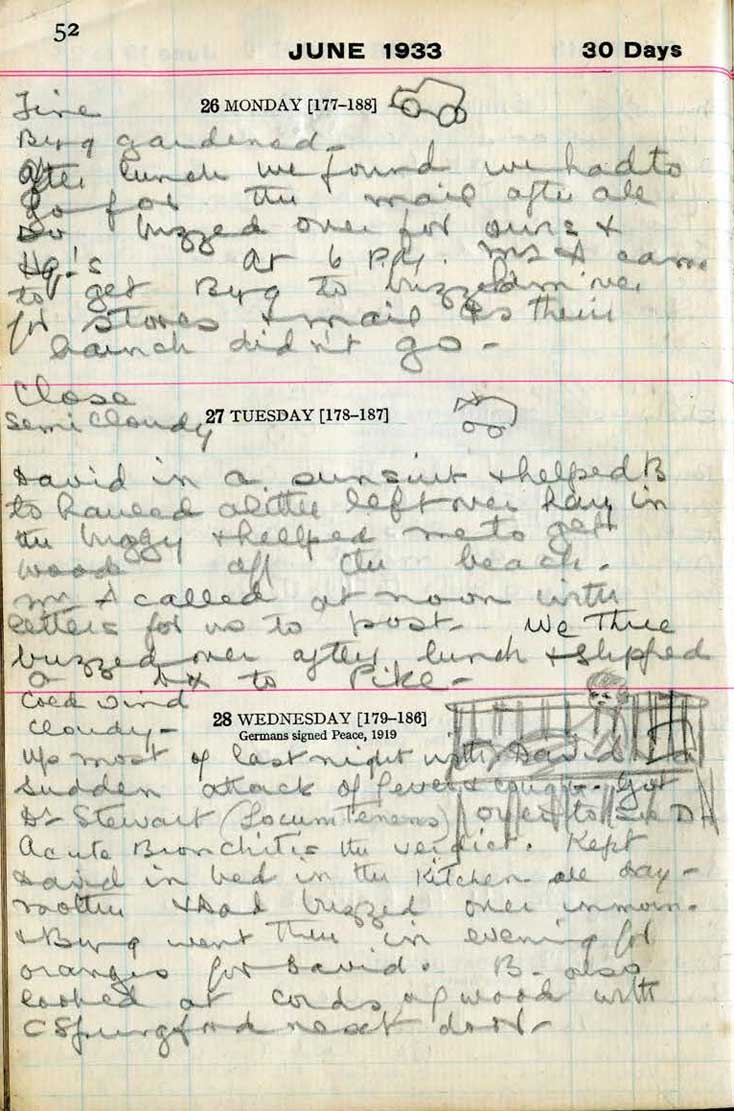 52
JUNE 1933 30 Days
Fine
26 MONDAY [177–188]
Byng gardened.
After lunch we found we had to
go for the mail after all
So buzzed over for ours &
Hq.'s at 6 P.M. Mrs A came
to get Byng to buzz over
for stores & mail as their
launch didn't go -
Close
Semi Cloudy
27 TUESDAY [178–187]
David in a sunsuit & helped B
to hauled a little left over hay in
the buggy & helped me to get
wood off the beach.
Mr A called at noon with
letters for us to post. We Three
buzzed over after lunch & shipped
a to Pike -
Cold wind
Cloudy -
28 WEDNESDAY [179–186]
Germans signed Peace, 1919
Up most of last night with David in
Sudden attack of fever & cough. Got
Dr Stewart (Locum Tenens) over to see D
Acute Bronchitis the verdict. Kept
David in bed in the Kitchen all day -
Mother & Dad buzzed over in morn.
& Byng went there in evening for
oranges for David. B. also
looked at cords of wood with
C Spurgford next door -